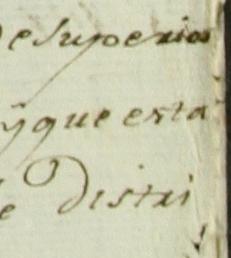 de superior
ÿ que esta
de Distri